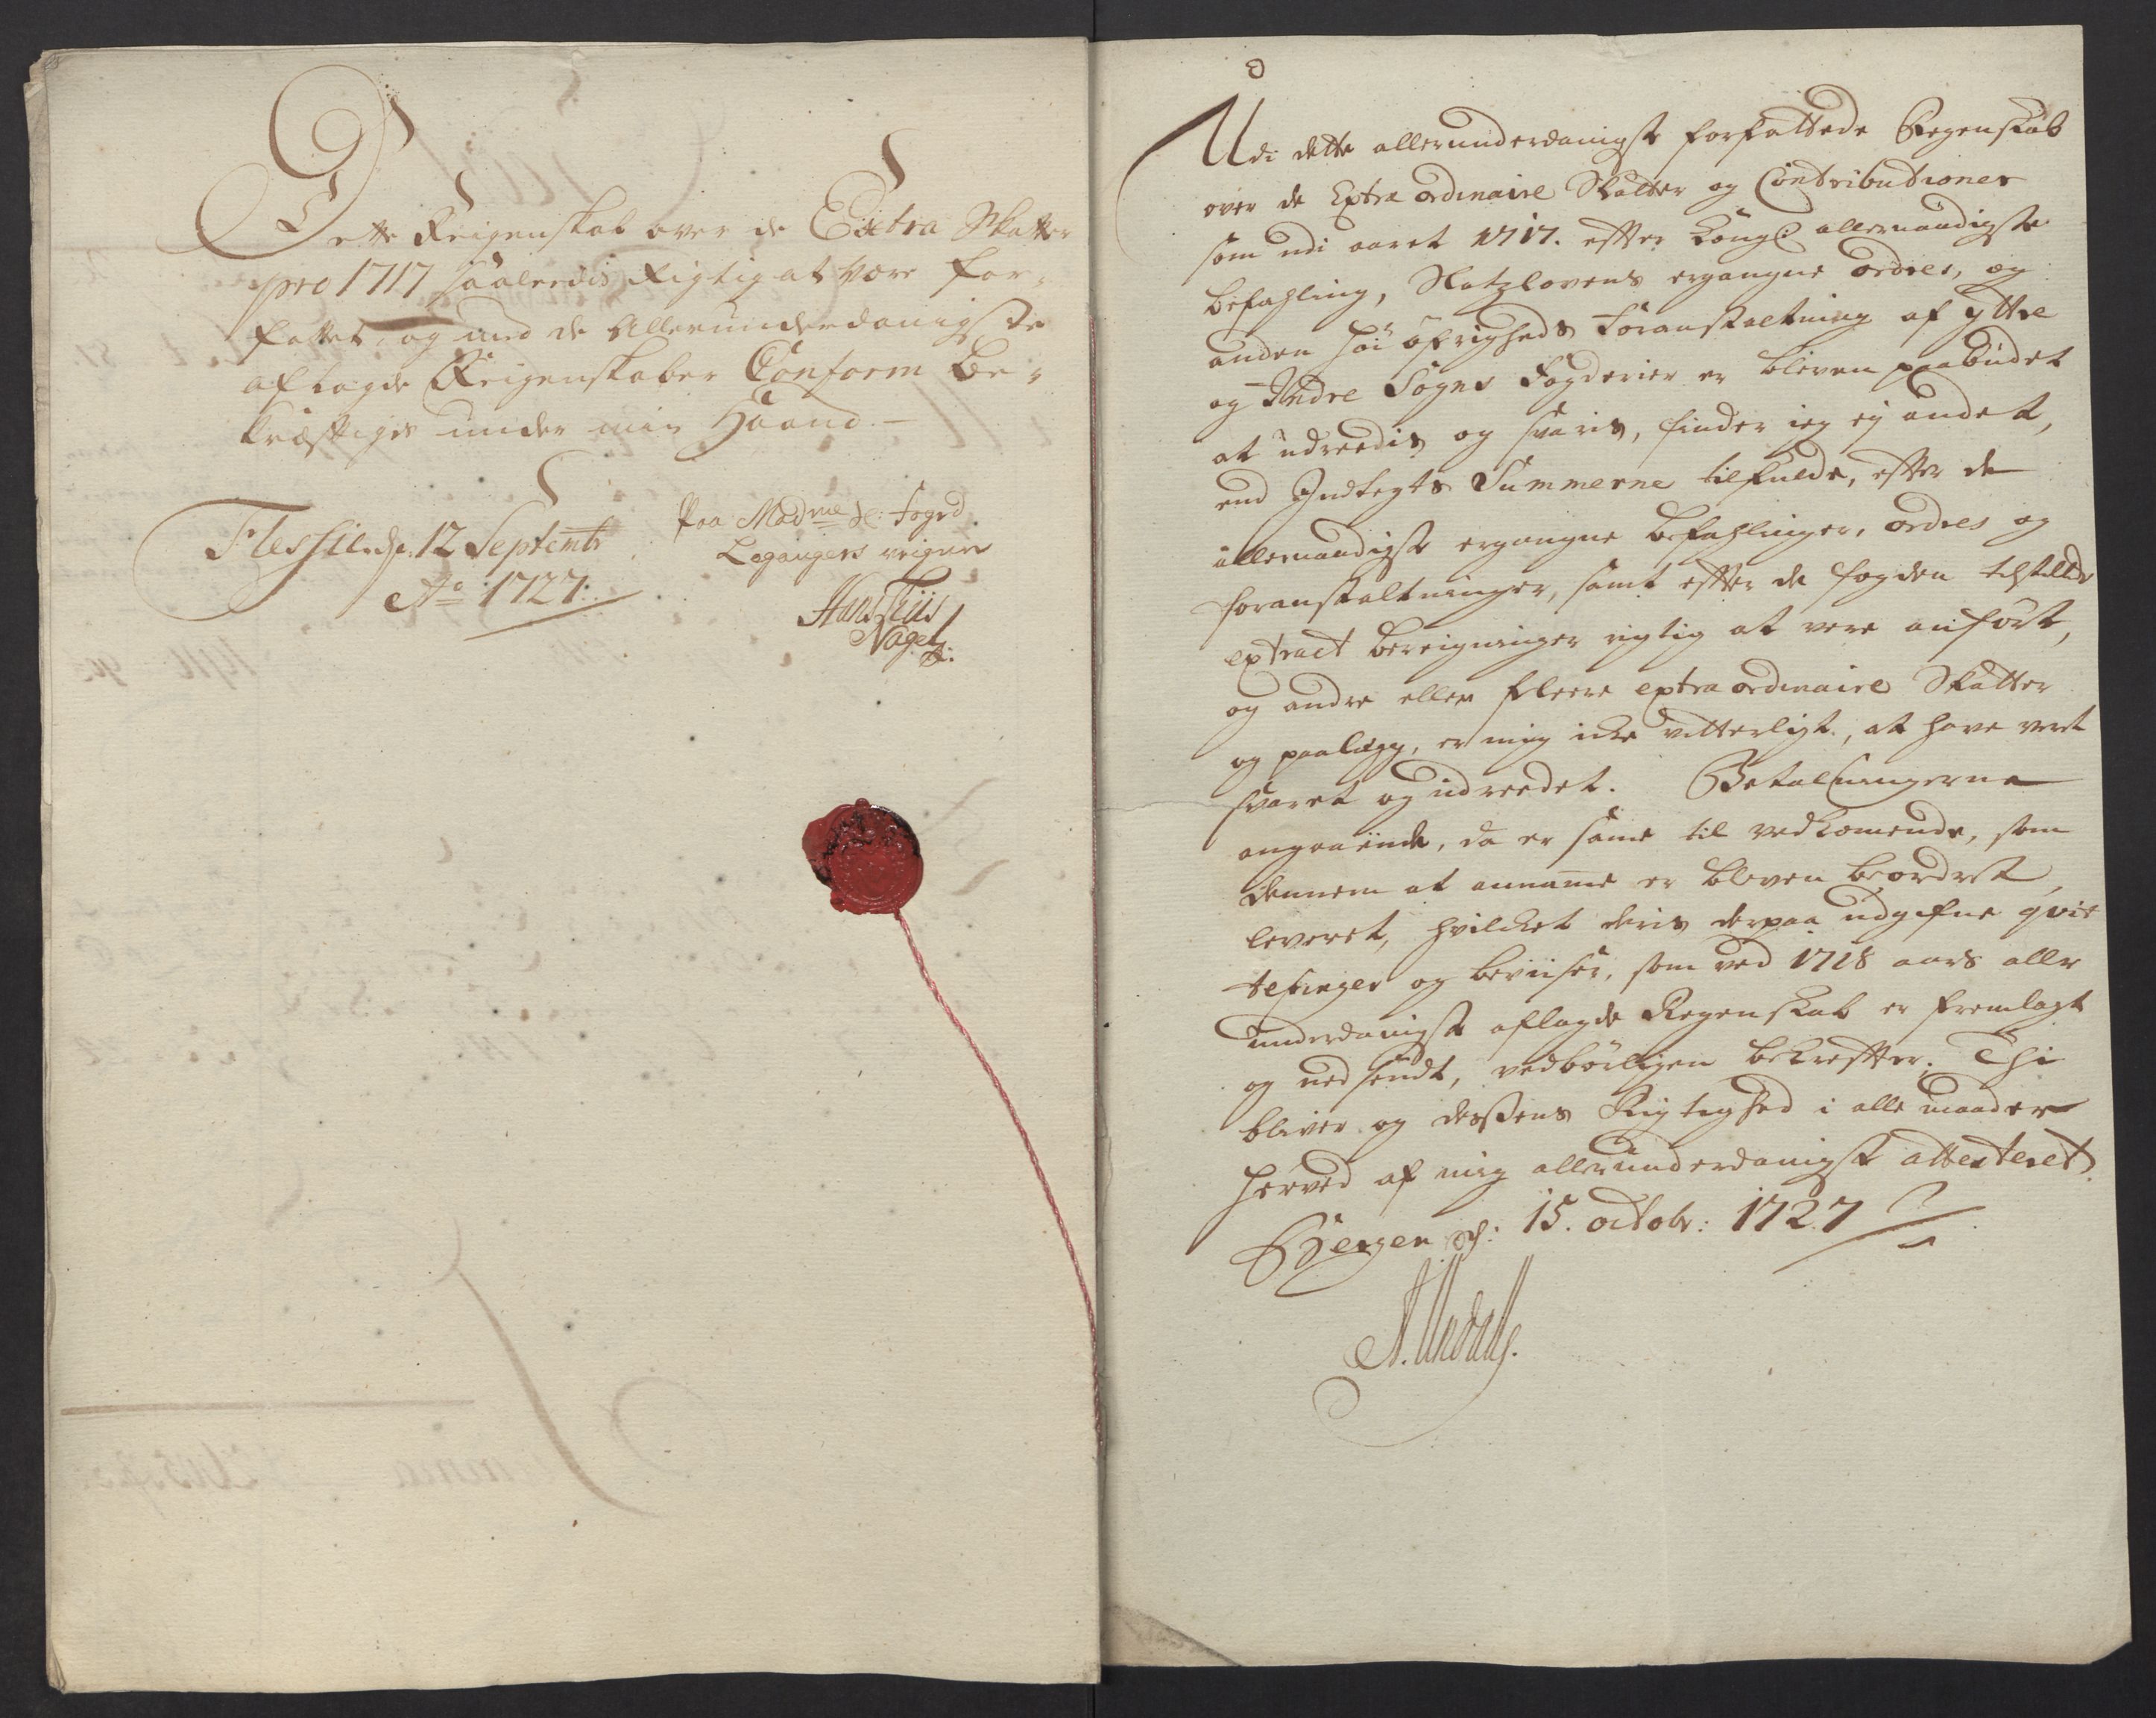 Dette Reigenskab over de Extra Skatter
pro 1717 saaleedis Rigtig at være for-
fattet, og med de Allerunderdanigste
aflagde Reigenskaber Conform be-
kræftiges under min Haand.
Flessie d. 12 Septembr
Ao 1727:
Paa Madme Sl: Foged
Legangers veigne
Hans Fiis
Nagel
Udi dette allerunderdanigst forfattede Regenskab
over de Extra ordinaire Skatter og Contributioner
som udi aaret 1717. efter Kongl: allernaadigste
befahling, Slotzlovens ergangne ordres, og
anden høi øfrigheds Foranstaltning af yttre
og Indre Sogns Fogderier er bleven paabudet
at udreedis og svaris, finder ieg ej andet,
end Indtegts Summerne tilfulde, efter de
allernaadigst ergangne befahlinger, ordres og
foranstaltninger, samt efter de fogden tilstillede
extract bereigninger rigtig at være anført,
og andre eller fleere extra ordinaire Skatter
og paalæg, er mig icke vitterligt, at have veret
svaret og udreedet. Betalningerne
angaaende, da er same til vedkomende, som
dennem at anname er bleven beordret,
leveret, hvilcket deris derpaa udgifne qvit-
teringer og beviiser, som ved 1718 aars aller
underdanigst aflagde Regenskab er fremlagt
og nedsendt, vedbørligen bekrefter. Thi
bliver og dessens Rigtighed i alle maader
herved af mig allerunderdanigst attesteret.
Bergen d: 15. octobr: 1727